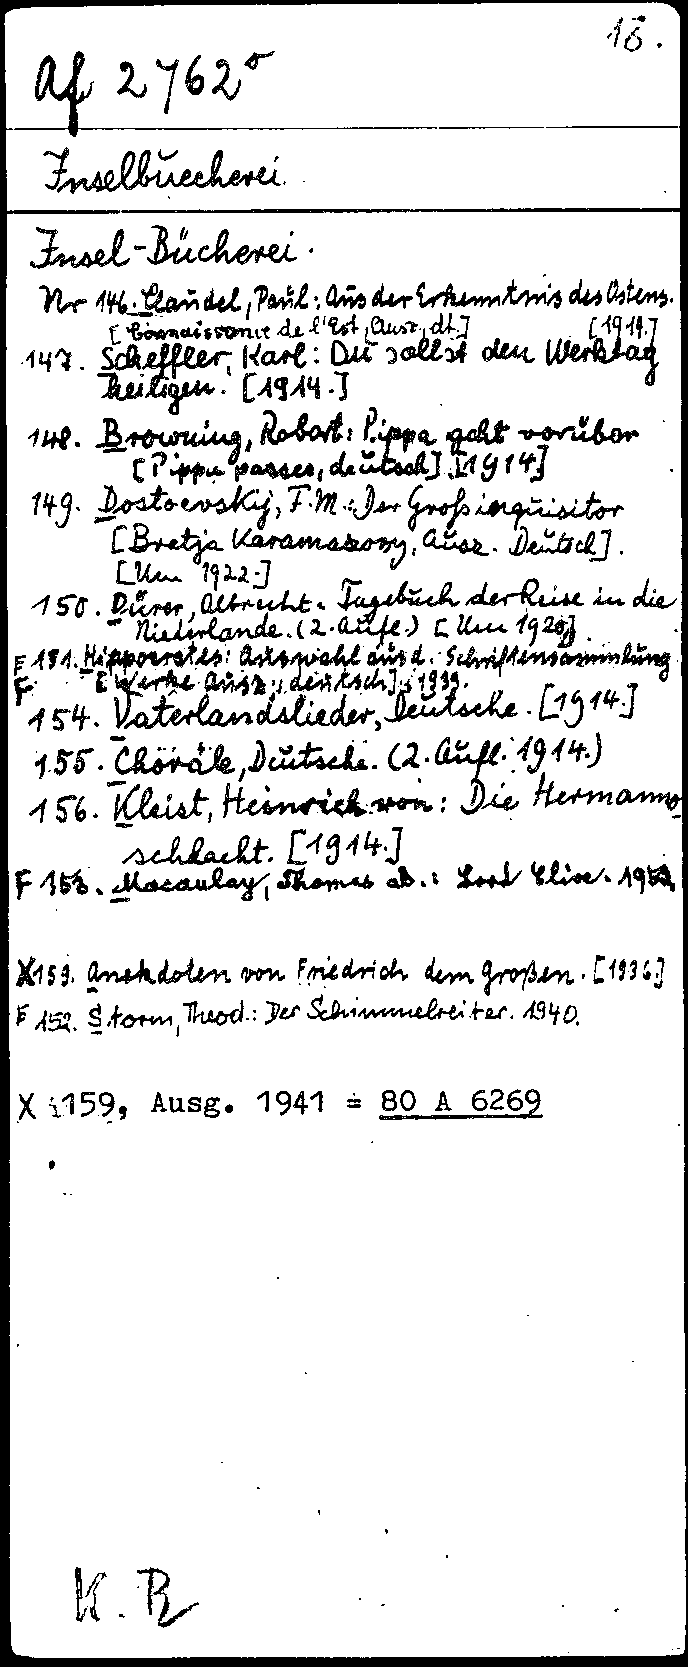 18.
Af 2762°
Inselbuecherei.
Insel-Bücherei.
Nr 146. Claudel, Paul: Aus der Erkenntnis des Ostens.
[Connaissance de l'Est, Ausz., dt.] [1914.]
147. Scheffler, Karl: Du sollst den Werktag
heiligen. [1914.]
148. Browning, Robert: Pippa geht vorüber
[Pippa passes, deutsch] [1914]
149. Dostoevskij, F. M.: Der Großinquisitor
[Bratja Karamazovy, Ausz. Deutsch].
[Um 1922.]
150. Dürer, Albrecht: Tagebuch der Reise in die
Niederlande. (2. Aufl.) [Um 1920]
F 151. Hippocrates: Auswahl aus d. Schriftensammlung
F [Werke Ausz., deutsch]. 1939.
154. Vaterlandslieder, Deutsche. [1914.]
155. Choräle, Deutsche. (2. Aufl. 1914.)
156. Kleist, Heinrich von: Die Hermanns-
schlacht. [1914.]
F Macaulay, Thomas B.: Lord Clive.
X 159. Anekdoten von Friedrich dem Großen. [1936.]
F 152. Storm, Theod.: Der Schimmelreiter. 1940.
X 159, Ausg. 1941 = 80 A 6269
K. R